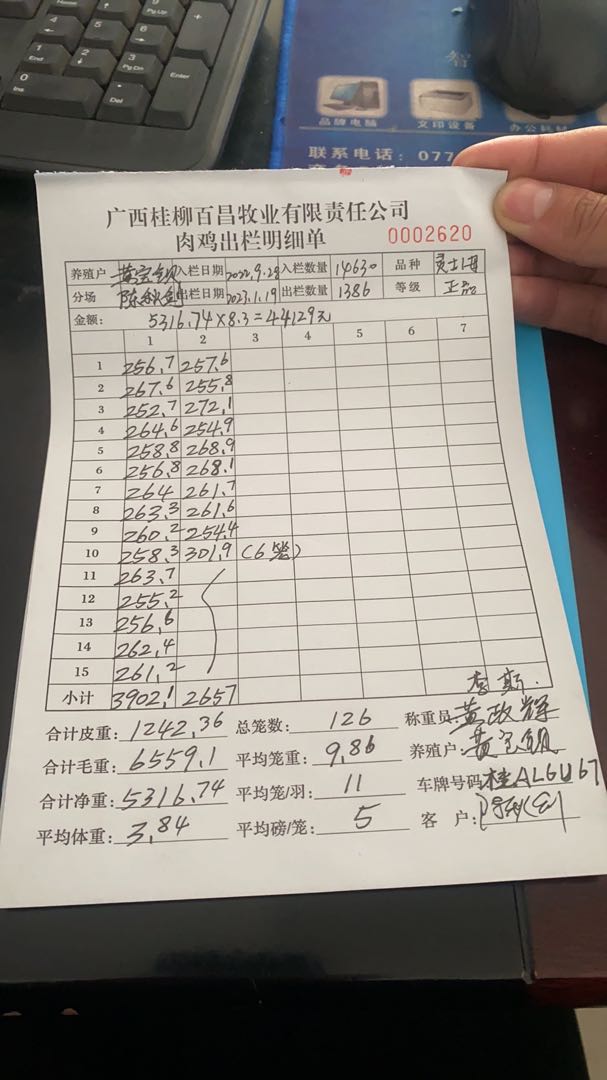 7
8
9
+
Home
PgUp
4
5
6
1
2
3
End
PgDn
Enter
0
Ins
.
Del
智
品牌电脑 文印设备 办公耗材
联系电话：077
广西桂柳百昌牧业有限责任公司
肉鸡出栏明细单 0002620
养殖户 黄宝钡 入栏日期 2022.9.28 入栏数量 14630 品种 灵土2母
分场 陈秋剑 出栏日期 2023.1.19 出栏数量 1386 等级 正品
金额: 5316.74×8.3=44129元
1 2 3 4 5 6 7
1 256.7 257.6
2 267.6 255.8
3 252.7 272.1
4 264.6 254.9
5 258.8 268.9
6 256.8 268.1
7 264 261.7
8 263.3 261.6
9 260.2 254.4
10 258.3 301.9 (6笼)
11 263.7
12 255.2
13 256.6
14 262.4
15 261.2
小计 3902.1 2657
合计皮重: 1242.36 总笼数: 126 称重员: 黄政辉
合计毛重: 6559.1 平均笼重: 9.86 养殖户: 黄宝钡
合计净重: 5316.74 平均笼/羽: 11 车牌号码 桂AL6U67
平均体重: 3.84 平均磅/笼: 5 客 户: